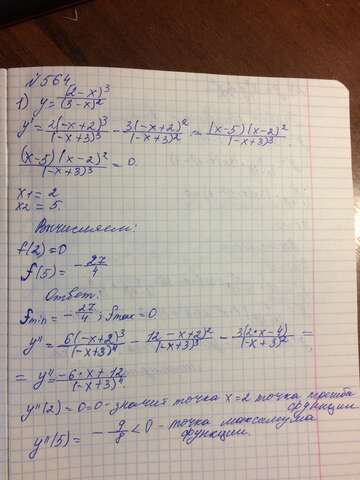 №564
1) y = (2-x)^3/(3-x)^2
y' = 2(-x+2)^3/(-x+3)^3 - 3(-x+2)^2/(-x+3)^2 = (x-5)(x-2)^2/(-x+3)^3
(x-5)(x-2)^2/(-x+3)^3 = 0
x1 = 2
x2 = 5.
Вычисляем:
f(2)=0
f(5) = -27/4
Ответ:
fmin = -27/4; fmax = 0
y'' = 6(-x+2)^3/(-x+3)^4 - 12(-x+2)^2/(-x+3)^3 - 3(2*x-4)/(-x+3)^2 =
= y'' = -6*x+12/(-x+3)^4
y''(2) = 0=0 - значит точка x=2 точка перегиба
функции
y''(5) = -9/8 < 0 - точка максимума
функции.